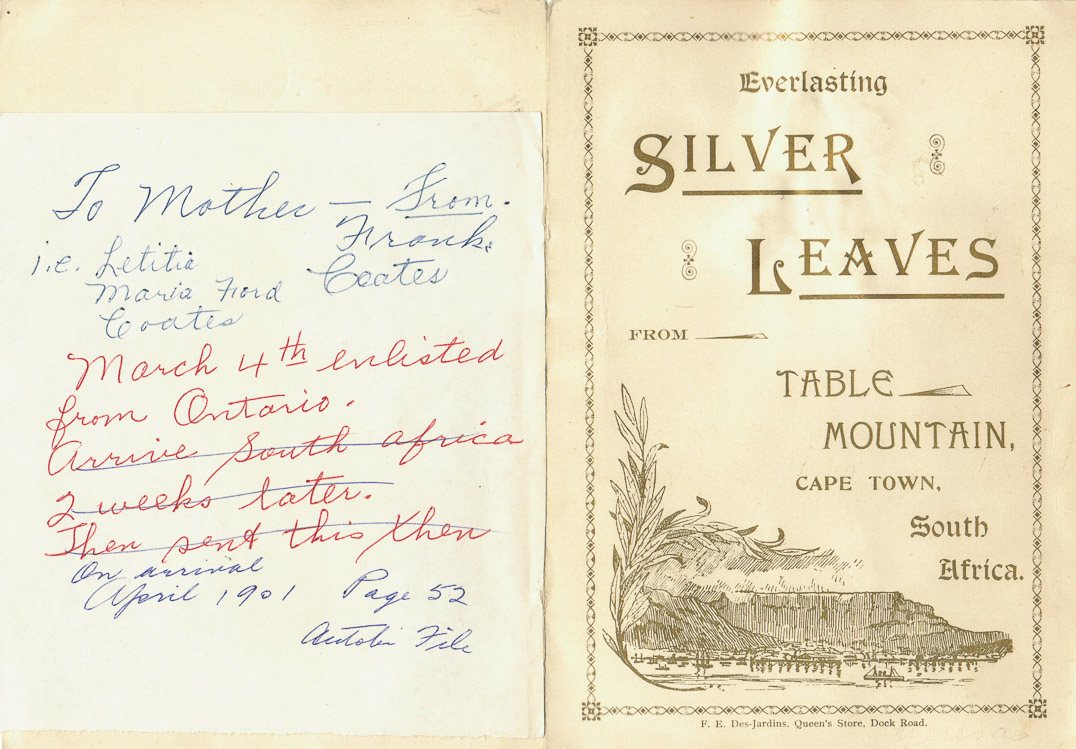 To Mother — From.
Frank.
i.e. Letitia
Coates
Maria Ford
Coates
March 4th enlisted
from Ontario.
Arrive South africa
2 weeks later.
Then sent this then
On arrival
April 1901 Page 52
Autobi File
Everlasting
SILVER
LEAVES
FROM
TABLE
MOUNTAIN,
CAPE TOWN,
South
Africa.
F. E. Des-Jardins, Queen's Store, Dock Road.